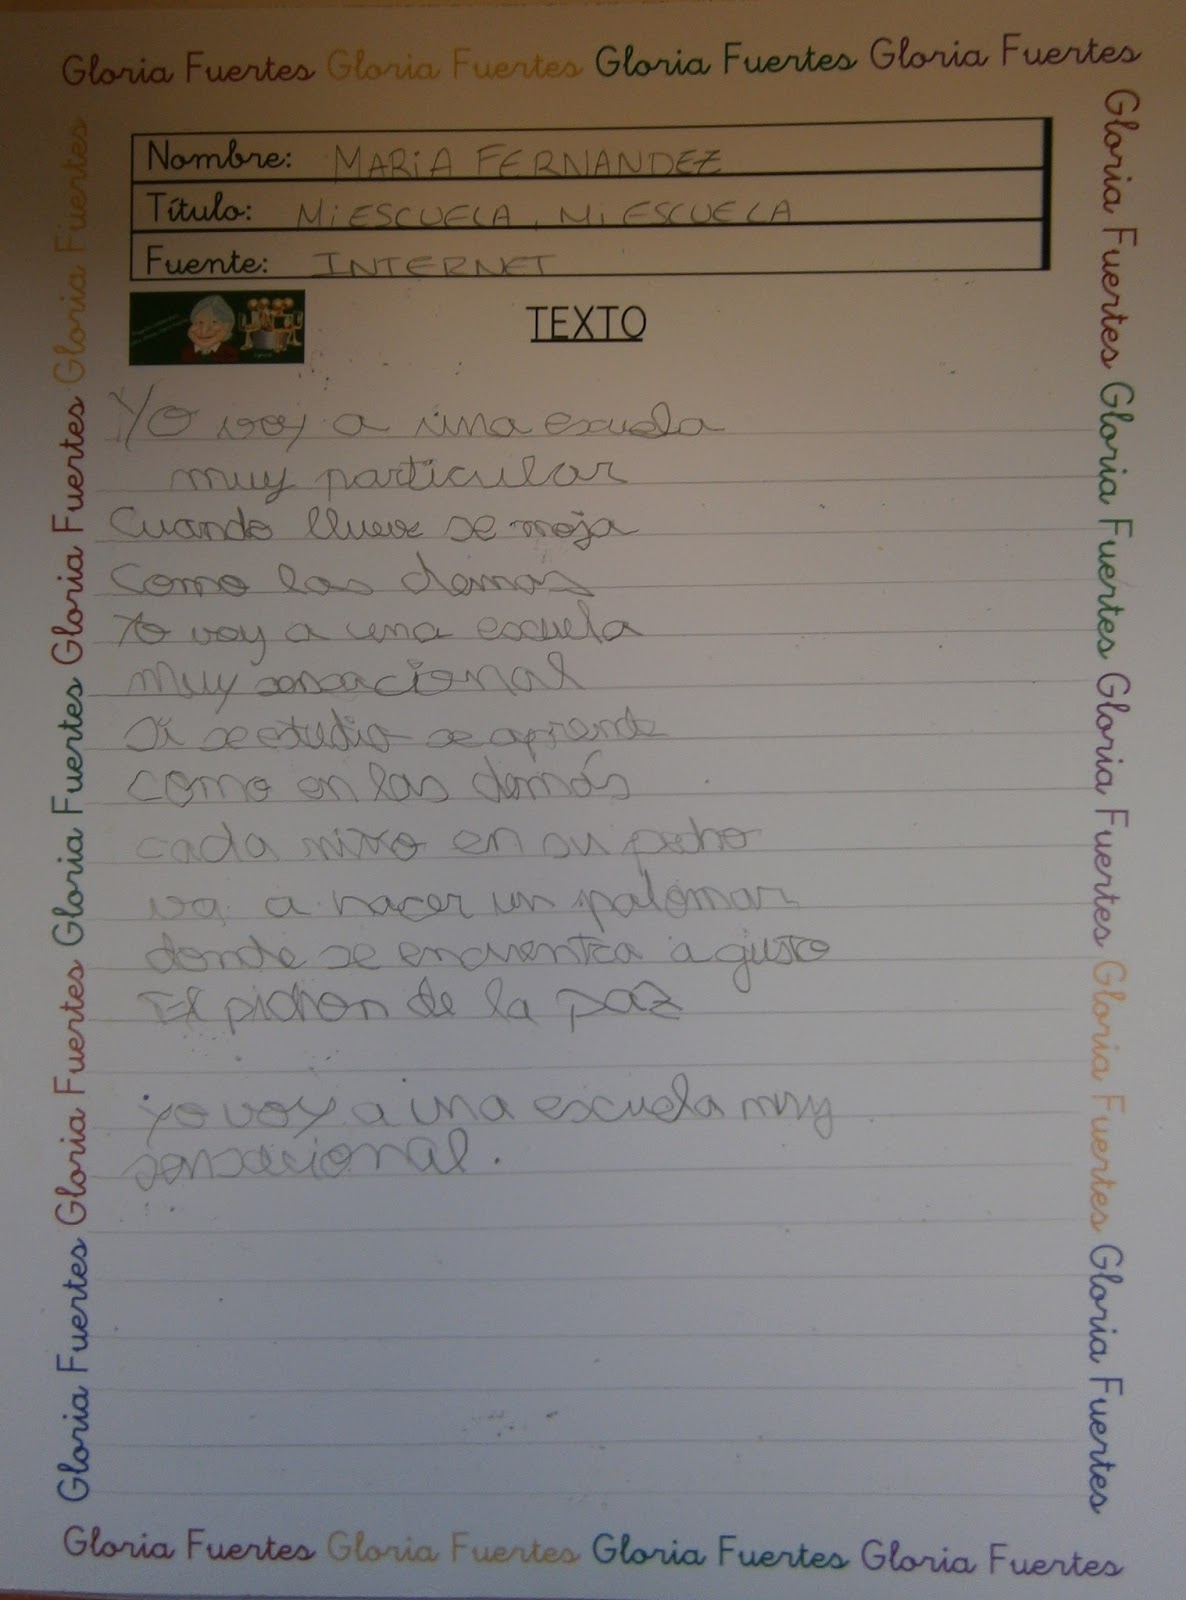 Gloria Fuertes Gloria Fuertes Gloria Fuertes Gloria Fuertes
Nombre: MARIA FERNANDEZ
Título: Mi ESCUELA, Mi ESCUELA
Fuente: INTERNET
TEXTO
Yo voy a una escuela
muy particular
Cuando llueve se moja
Como las demas
Yo voy a una escuela
muy sensacional
Si se estudia se aprende
como en las demás
cada niño en su pecho
va a hacer un palomar
donde se encuentra a gusto
El pichon de la paz
yo voy a una escuela muy
sensacional.
Gloria Fuertes Gloria Fuertes Gloria Fuertes Gloria Fuertes Gloria Fuertes
Gloria Fuertes Gloria Fuertes Gloria Fuertes Gloria Fuertes Gloria Fuertes
Gloria Fuertes Gloria Fuertes Gloria Fuertes Gloria Fuertes